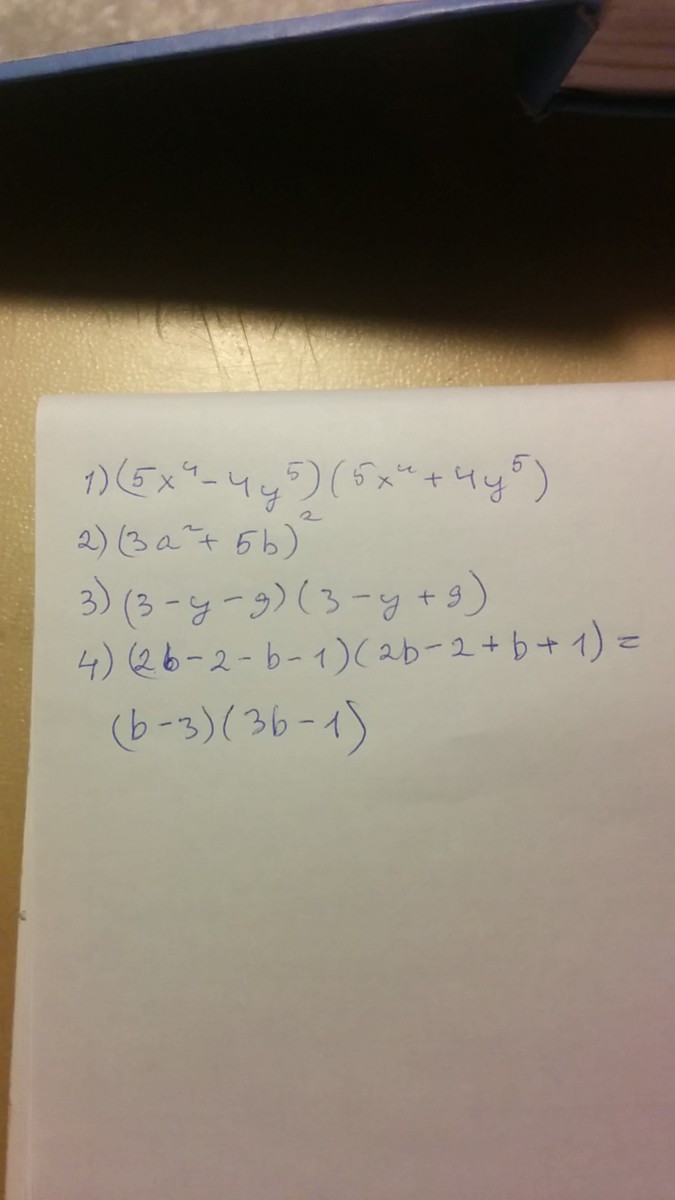 1) (5x⁴ - 4y⁵)(5x⁴ + 4y⁵)
2) (3a² + 5b)²
3) (3 - y - 9)(3 - y + 9)
4) (2b - 2 - b - 1)(2b - 2 + b + 1) =
(b - 3)(3b - 1)